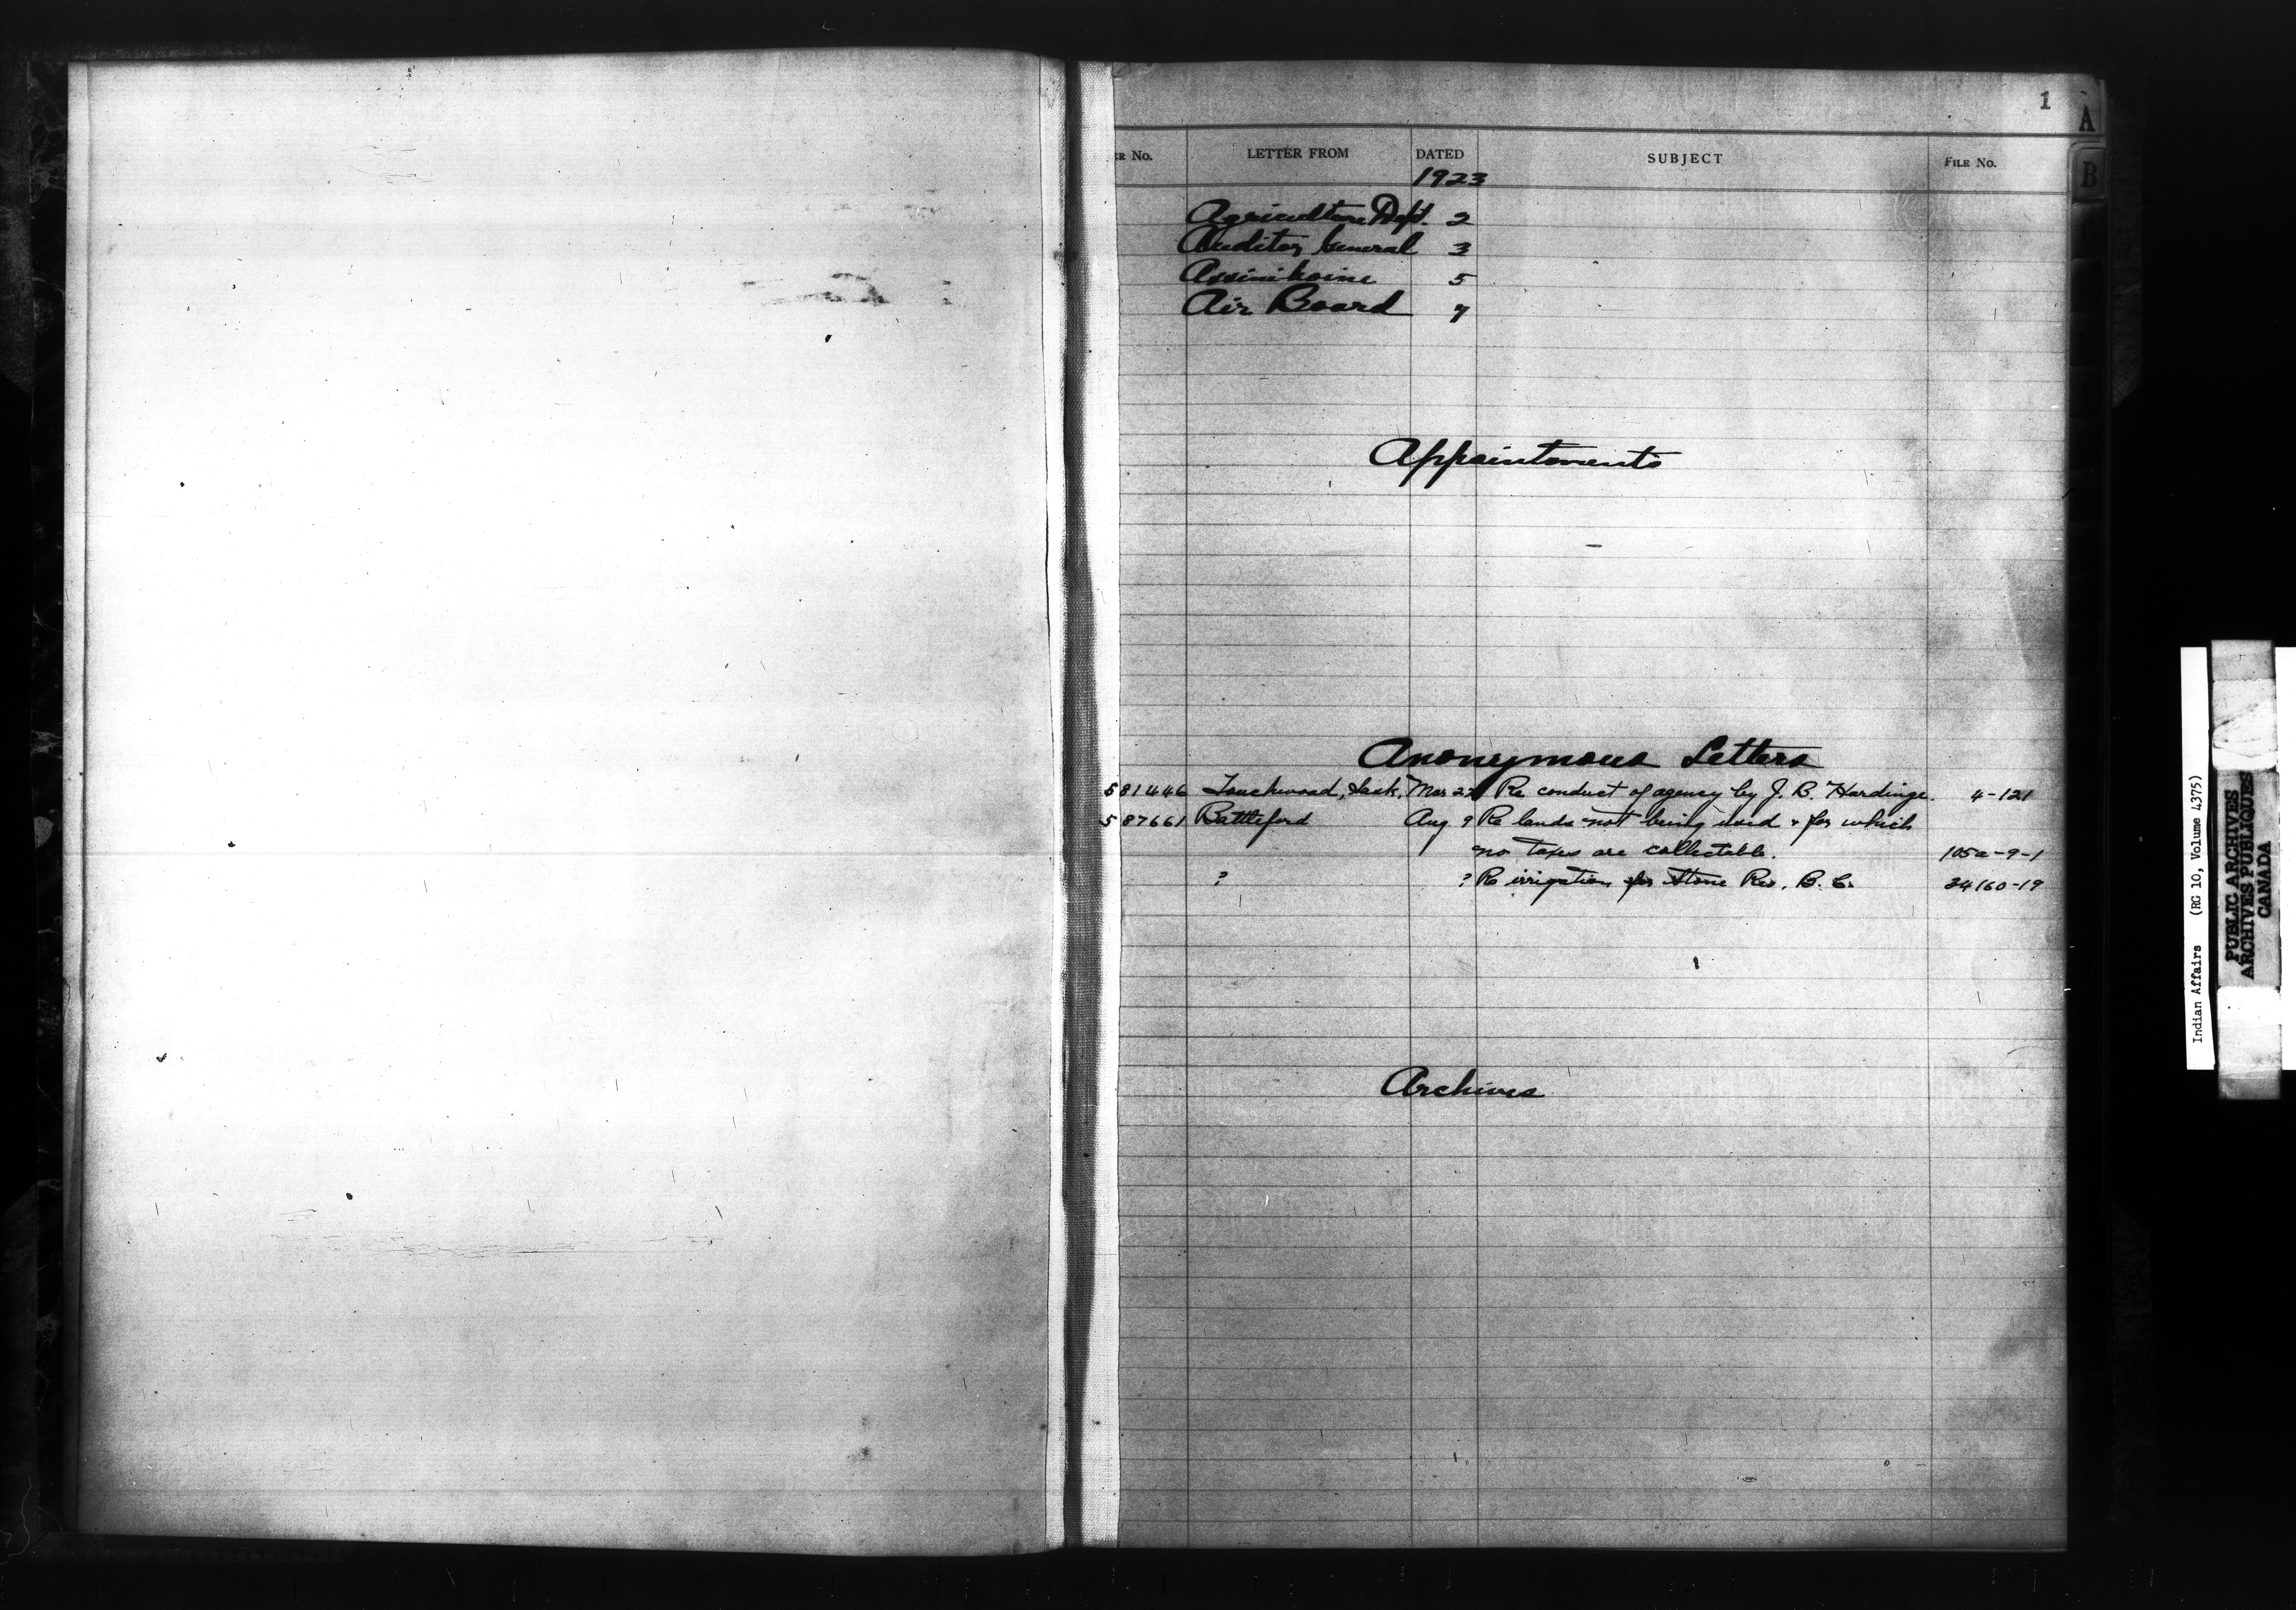 1
A
B
ER No. LETTER FROM DATED SUBJECT FILE No.
1923
Agriculture Dept. 2
Auditor General 3
Assiniboine 5
Air Board 7
Appointments
Anonymous Letters
581446 Touchwood, Sask, Mar 27 Re conduct of agency by J. B. Hardinge. 4-121
587661 Battleford Aug 9 Re lands not being used & for which
no taxes are collectable. 105a-9-1
? ? Re irrigation for Stone Res. B. C. 34160-19
Archives
Indian Affairs (RG 10, Volume 4375)
PUBLIC ARCHIVES
ARCHIVES PUBLIQUES
CANADA